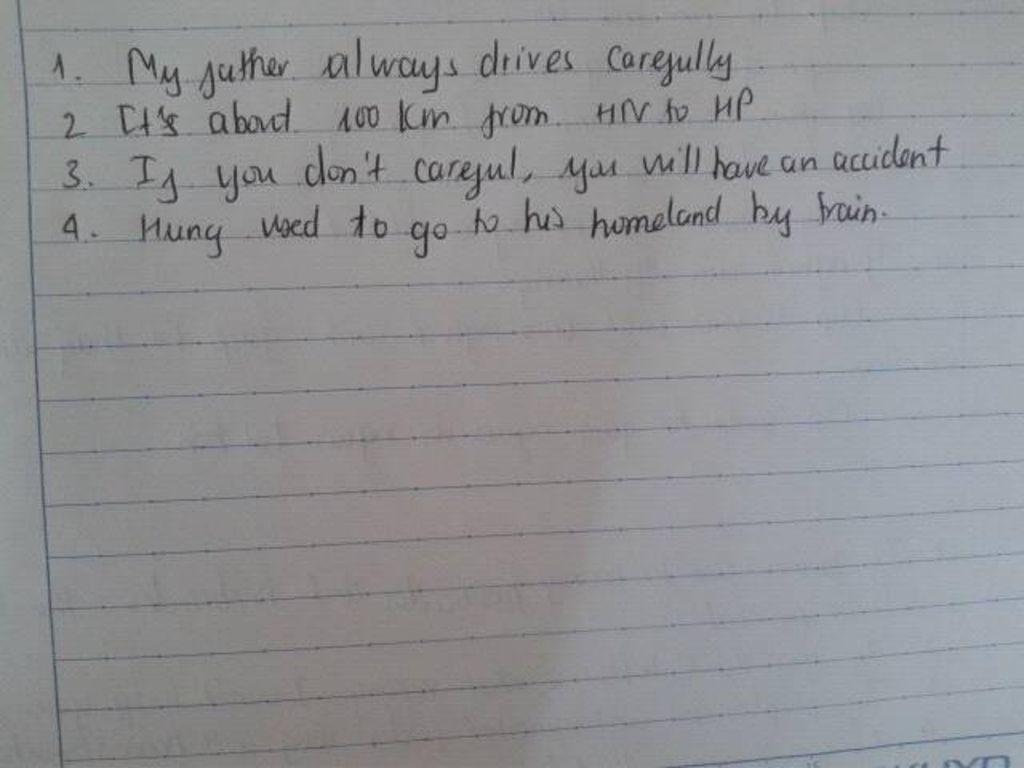 1. My father always drives carefully
2 It's about 100 Km from HN to HP
3. If you don't careful, you will have an accident
4. Hung used to go to his homeland by train.